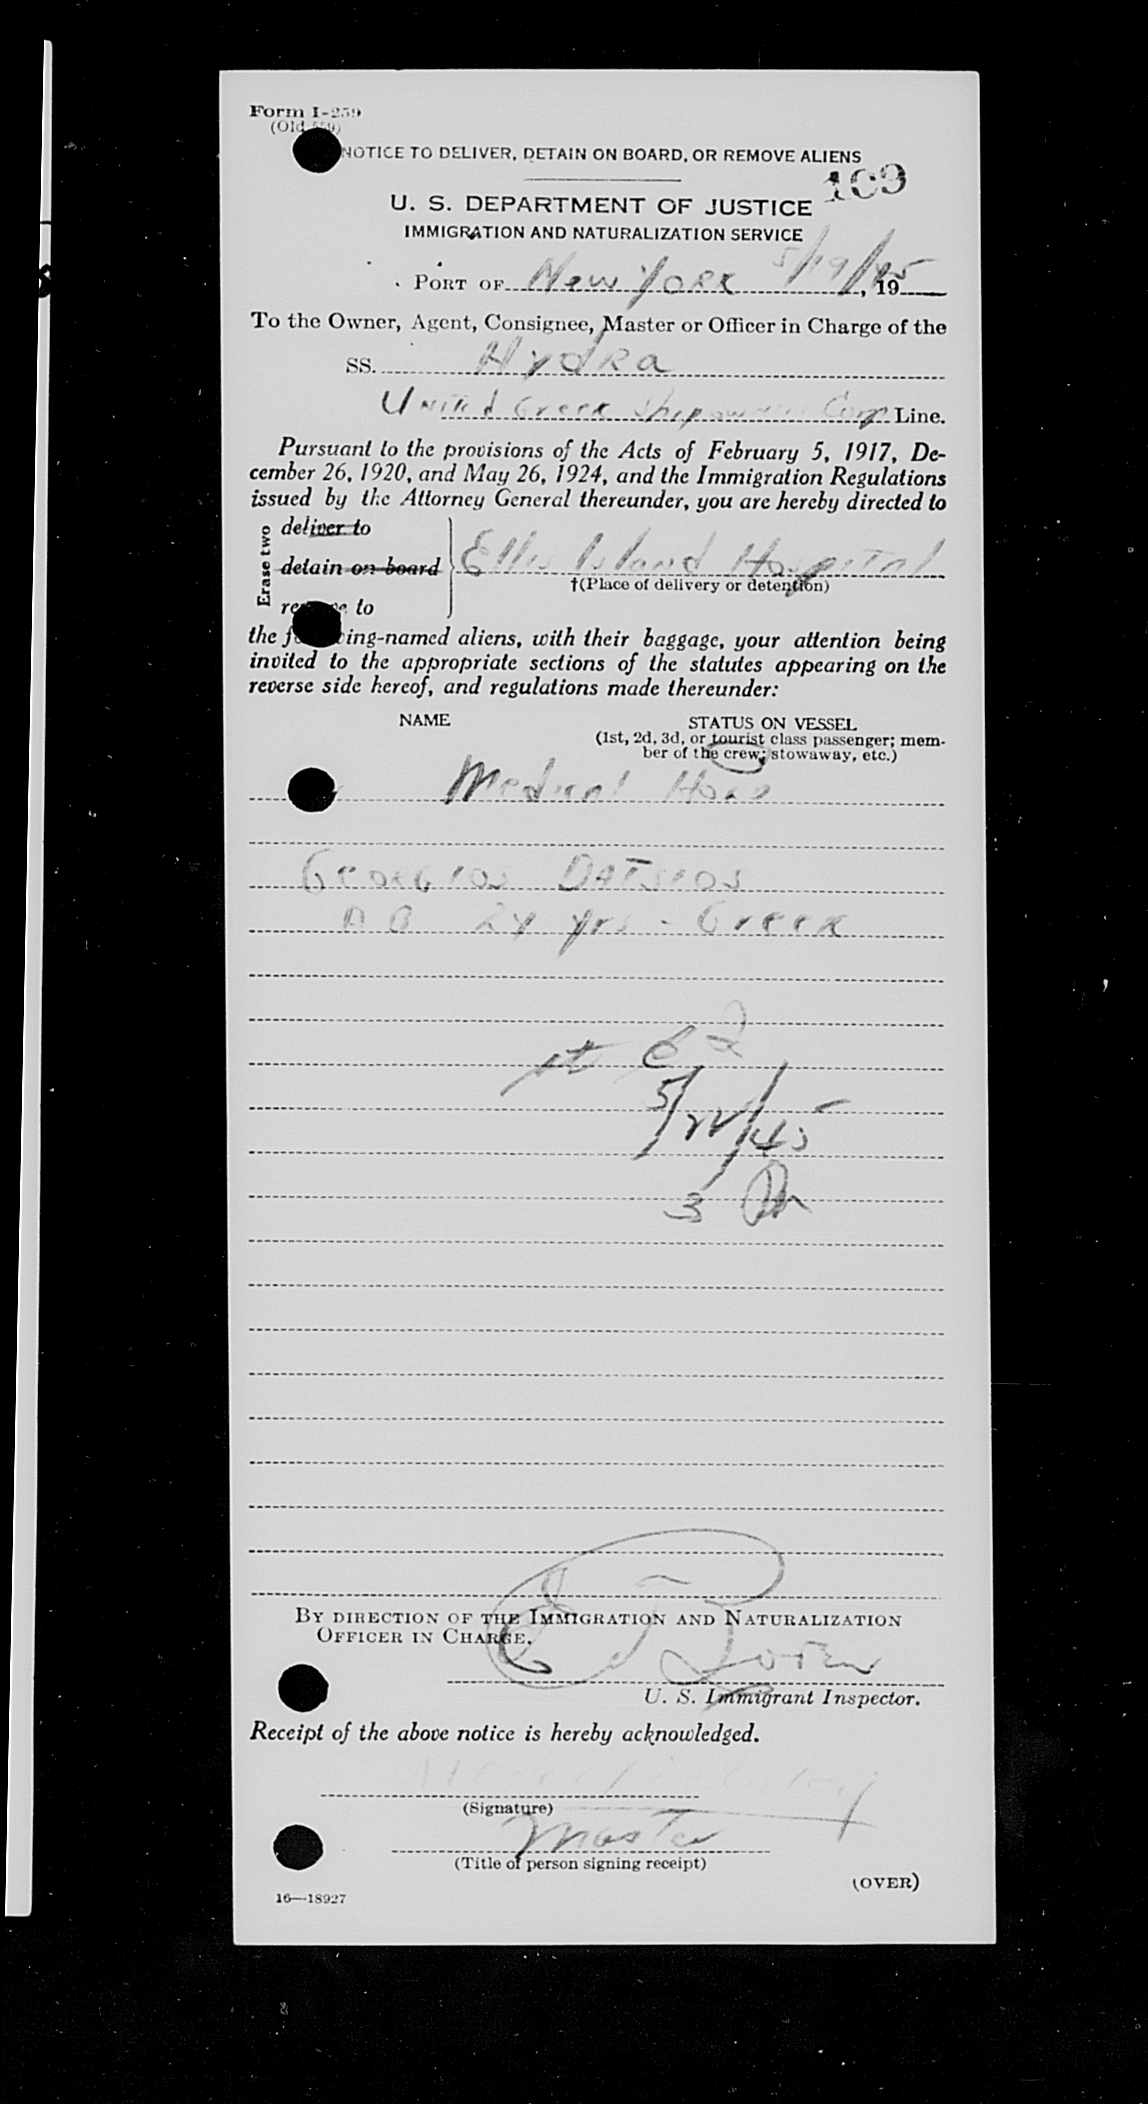 Form I-259
(Old 559)
NOTICE TO DELIVER, DETAIN ON BOARD, OR REMOVE ALIENS
169
U. S. DEPARTMENT OF JUSTICE
IMMIGRATION AND NATURALIZATION SERVICE
PORT OF New York 5/19/45, 19
To the Owner, Agent, Consignee, Master or Officer in Charge of the
SS. Hydra
United Greek Shipowners Corp Line.
Pursuant to the provisions of the Acts of February 5, 1917, De-
cember 26, 1920, and May 26, 1924, and the Immigration Regulations
issued by the Attorney General thereunder, you are hereby directed to
Erase two
deliver to
detain on board
Ellis Island Hospital
†(Place of delivery or detention)
remove to
the following-named aliens, with their baggage, your attention being
invited to the appropriate sections of the statutes appearing on the
reverse side hereof, and regulations made thereunder:
NAME
STATUS ON VESSEL
(1st, 2d, 3d, or tourist class passenger; mem-
ber of the crew; stowaway, etc.)
Medical Hold
Georgios DATSIOS
AB 24 yrs - Greek
5/22/45
3
BY DIRECTION OF THE IMMIGRATION AND NATURALIZATION
OFFICER IN CHARGE.
U. S. Immigrant Inspector.
Receipt of the above notice is hereby acknowledged.
(Signature)
Master
(Title of person signing receipt)
(OVER)
16—18927